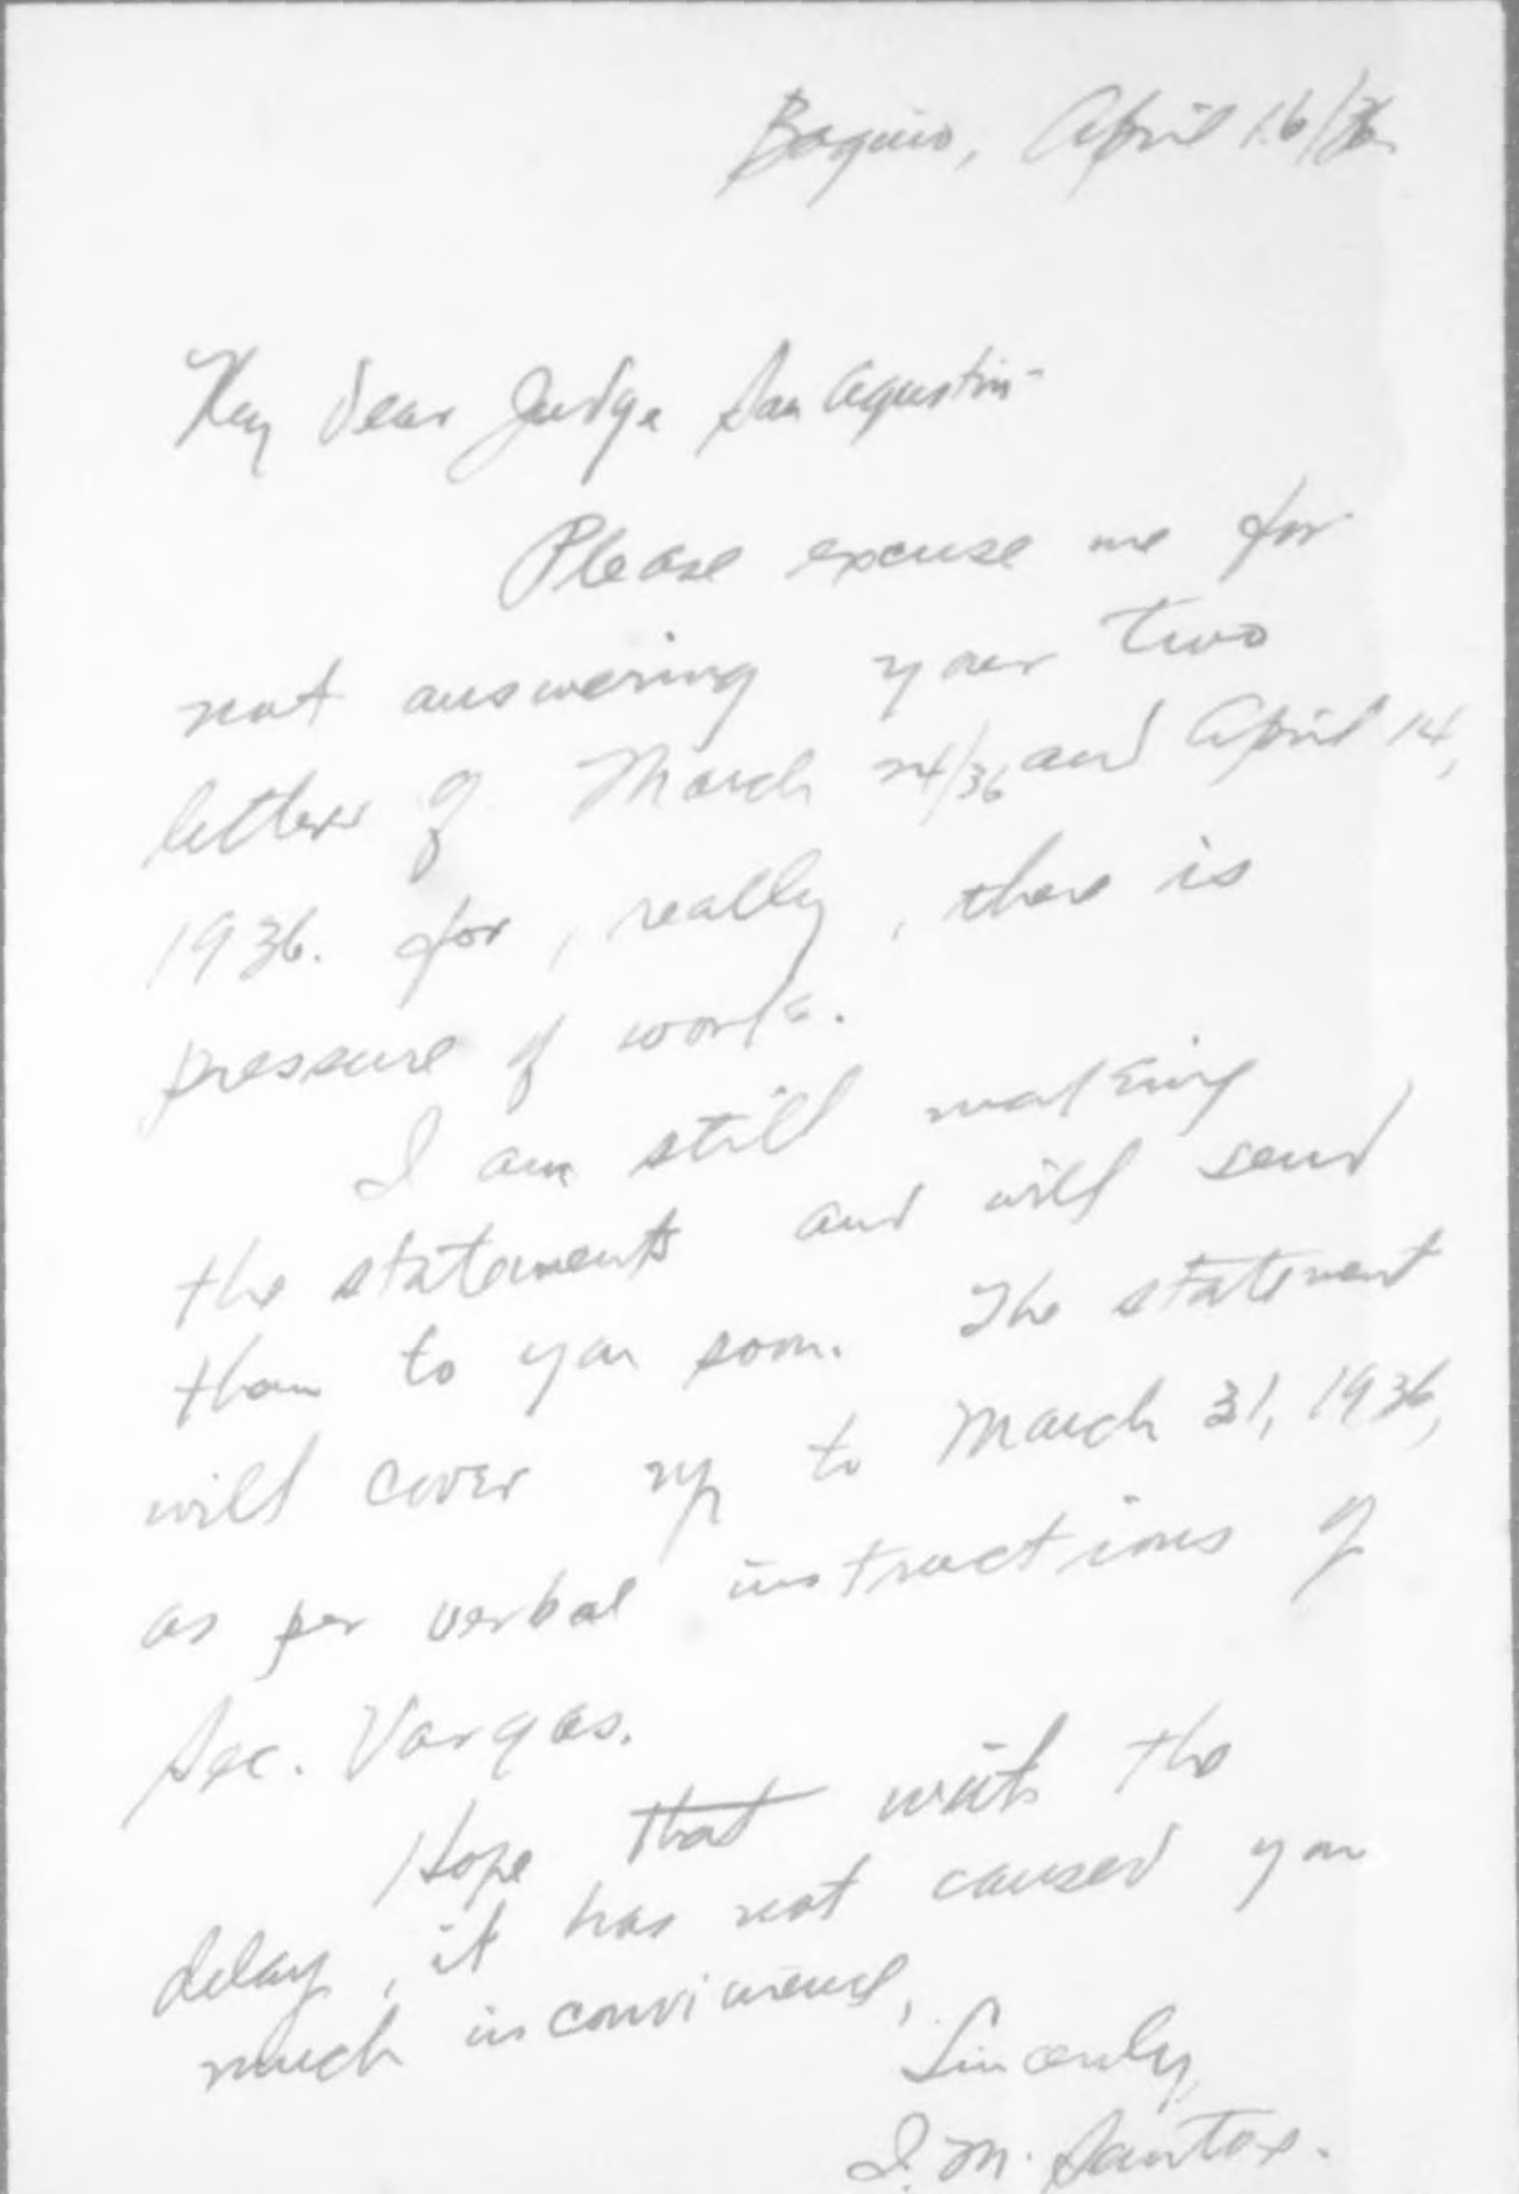 Baguio, April 16/36
My dear Judge San Agustin-
Please excuse me for
not answering your two
letters of March 24/36 and April 14,
1936. for, really, there is
pressure of work.
I am still making
the statements and will send
them to you soon. The statement
will cover up to March 31, 1936,
as per verbal instructions of
Sec. Vargas.
Hope that with the
delay, it has not caused you
much inconvinience,
Sincerely,
I. M. Santos.